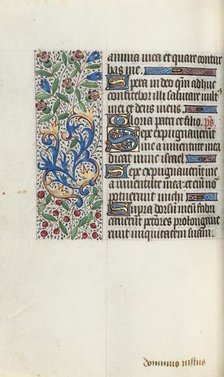 anima mea et quare contur
bas me.
Spera in deo qm adhuc
confitebor illi salutare vult
mei et deus meus
Gloria patri et filio. ps.
Sepe expugnauerunt
me a iuuentute mea
dicat nunc israel
Sepe expugnauerunt me
a iuuentute mea et enim non
potuerunt michi
Supra dorsum meum fabri
cauerunt peccatores prolongaue
runt iniquitatem suam
dominus iustus